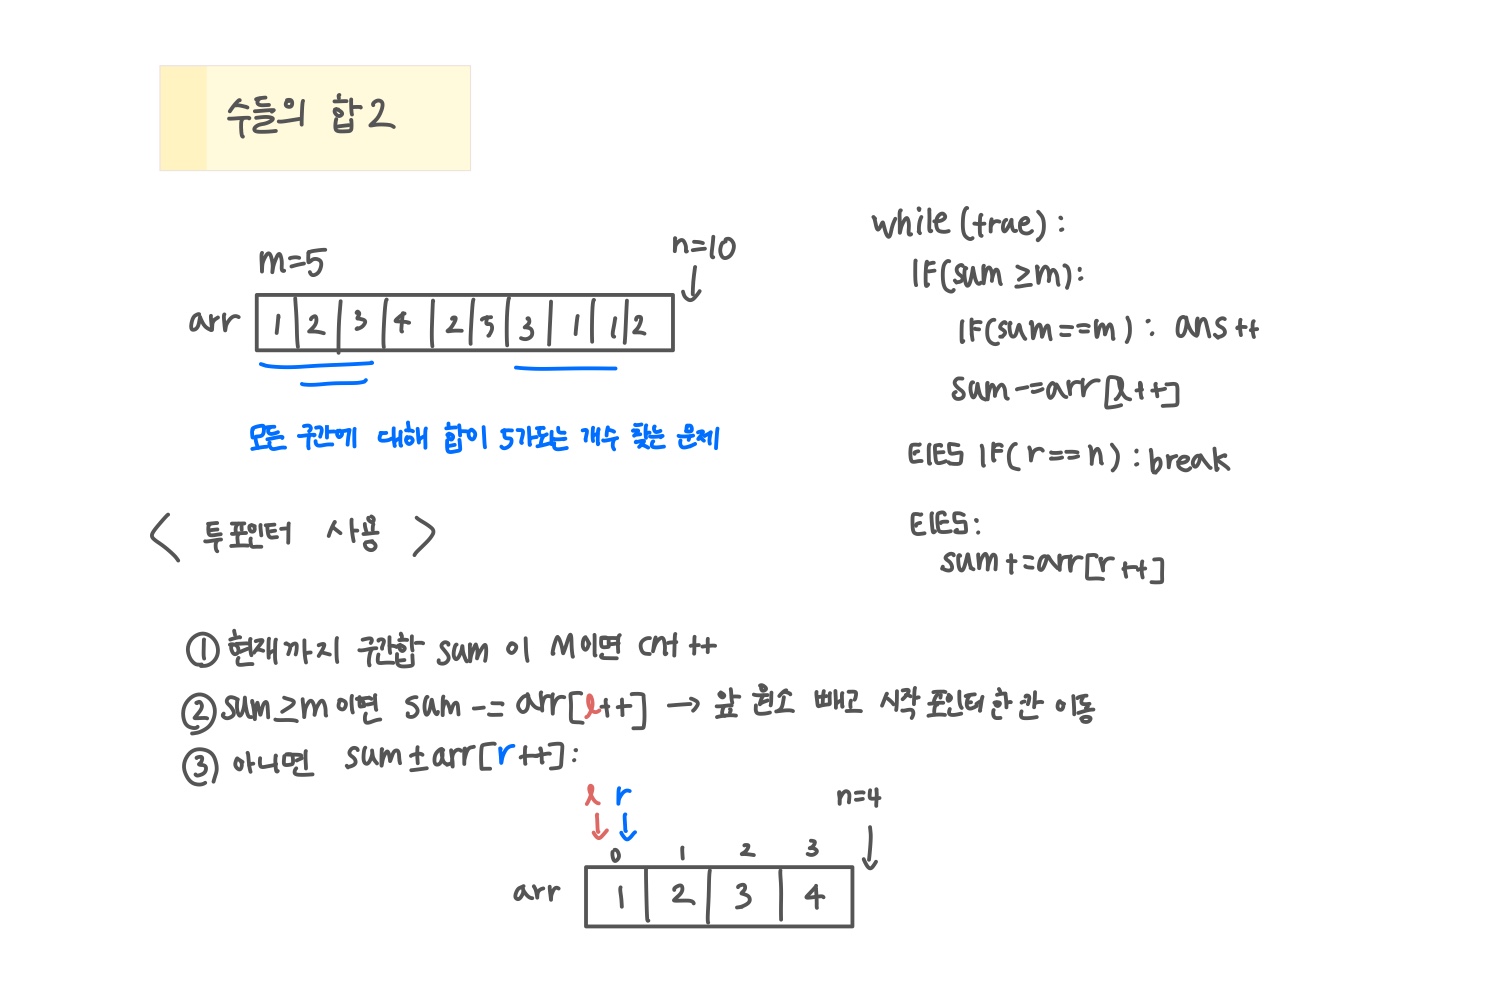 수들의 합 2
m=5
n=10
arr 1 2 3 4 2 5 3 1 1 2
모든 구간에 대해 합이 5가되는 개수 찾는 문제
< 투포인터 사용 >
while (true) :
IF(sum ≥m):
IF(sum==m) : ans++
sum-=arr[l++]
ElES IF(r==n) : break
ElES:
sum+=arr[r++]
① 현재까지 구간합 sum 이 M이면 cnt++
② sum≥m이면 sum-= arr[l++] → 앞 원소 빼고 시작포인터 한칸 이동
③ 아니면 sum±arr[r++]:
l r
n=4
0 1 2 3
arr 1 2 3 4